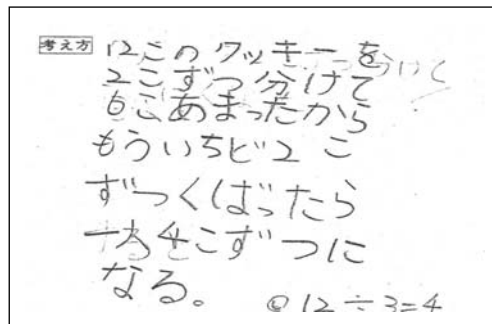 考え方
12このクッキーを
2こずつ分けて
6こあまったから
もういちど2こ
ずつくばったら
4こずつに
なる。
12÷3=4